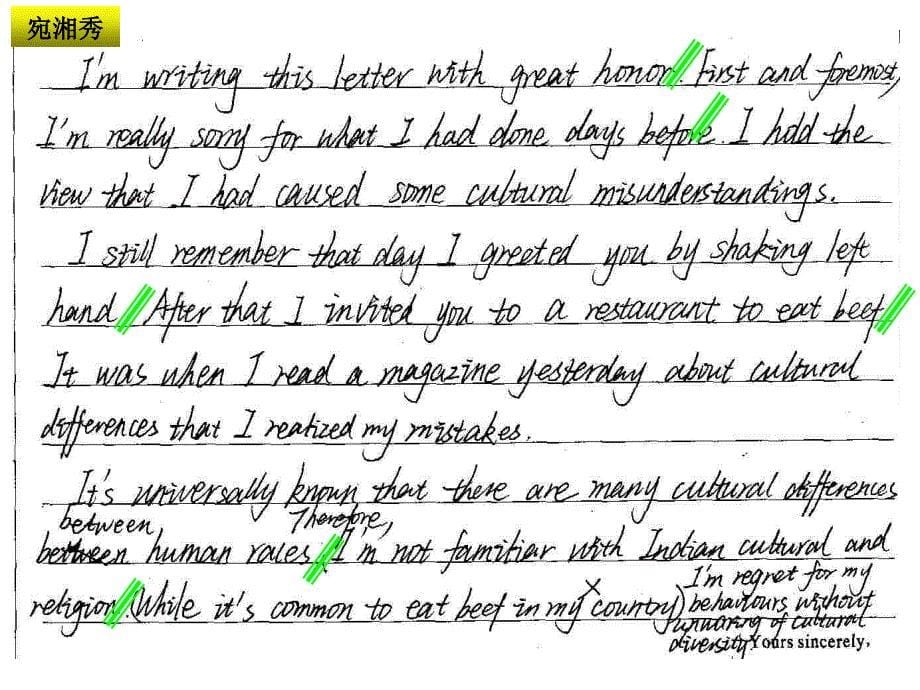 宛湘秀
I'm writing this letter with great honor. First and foremost,
I'm really sorry for what I had done days before. I hold the
view that I had caused some cultural misunderstandings.
I still remember that day I greeted you by shaking left
hand. After that I invited you to a restaurant to eat beef.
It was when I read a magazine yesterday about cultural
differences that I realized my mistakes.
It's universally known that there are many cultural differences
between Therefore,
between human races. (I'm not familiar with Indian cultural and
religion. (While it's common to eat beef in my country)
I'm regret for my
behaviours without
unwaring of cultural
diversity.
Yours sincerely,